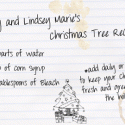 y and Lindsey Marie's
Christmas Tree Re
parts of water
of corn syrup
tablespoons of Bleach
*add daily or
to keep your c
fresh and gree
the h